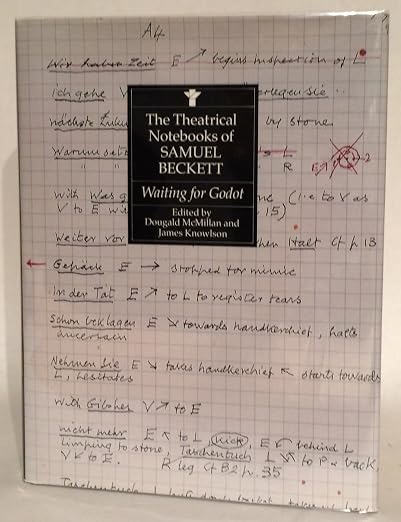 A4
Wir haben Zeit E ↗ begins inspection of L
Ich gehe V erlegen Sie ..
nächste Zuku by stone
Warum L
" " R E 2
with Was g ne (i.e to V as
V to E wi 15)
Weiter vor hen Halt cf p 13
← Gepäck E → stopped for mimic
In der Tat E ↗ to L to register tears
Schon beklagen E ↘ towards handkerchief, halts
uncertain
Nehmen Sie E ↘ takes handkerchief ↖ starts towards
L, hesitates
With Gibober V ↗ to E
nicht mehr E ↖ to L, kick, E ↙ behind L
limping to stone, Taschentuch L ↘ to P & back
V ↙ to E. R leg cf B2 p. 35
Taschentuch L
The Theatrical
Notebooks of
SAMUEL
BECKETT
Waiting for Godot
Edited by
Dougald McMillan and
James Knowlson